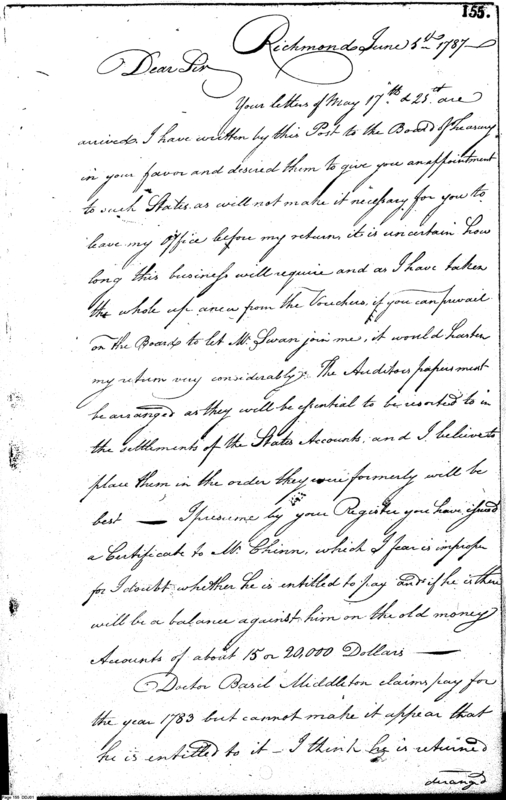 155.
Richmond June 5th 1787
Dear Sir
Your letters of May 17th & 25th are
arrived. I have written by this Post to the Board of Treasury
in your favor and desired them to give you an appointment
to such States as will not make it necessary for you to
leave my Office before my return, it is uncertain how
long this business will require and as I have taken
the whole up anew from the Vouchers, if you can prevail
on the Board to let Mr. Swan join me, it would hasten
my return very considerably. The Auditors papers must
be arranged as they will be essential to be resorted to in
the settlements of the States Accounts, and I believe to
place them in the order they were formerly will be
best — I presume by your Register you have issued
a Certificate to Mr. Chinn, which I fear is improper
for I doubt whether he is entitled to pay and if he is there
will be a balance against him on the old money
Accounts of about 15 or 20,000 Dollars —
Doctor Basil Middleton claims pay for
the year 1783 but cannot make it appear that
he is entitled to it — I think he is returned
deranged
Page 199